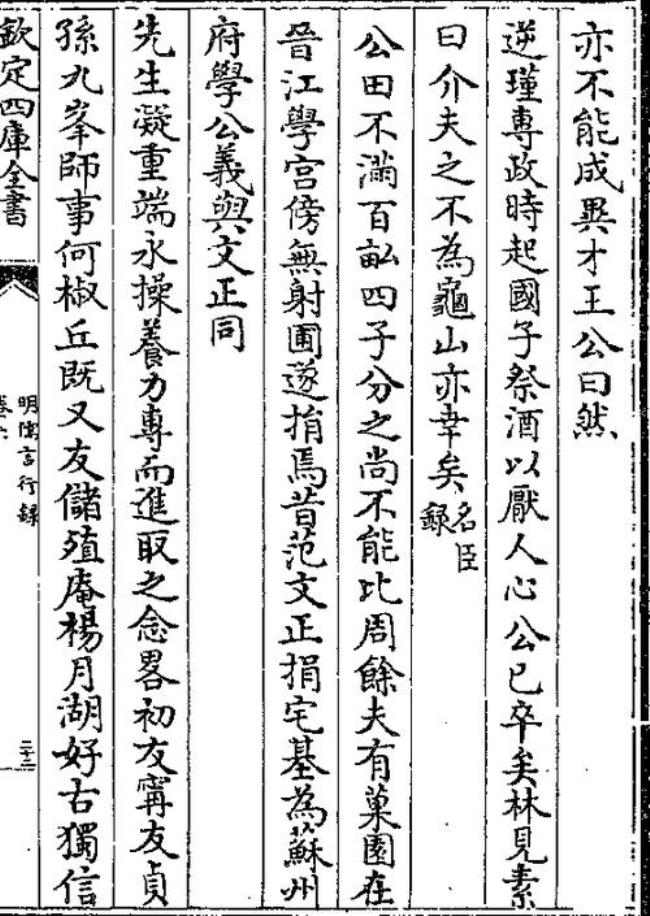 亦不能成異才王公曰然
逆瑾專政時起國子祭酒以厭人心公已卒矣林見素
曰介夫之不為龜山亦幸矣名臣錄
公田不滿百畝四子分之尚不能比周餘夫有菓園在
晉江學宮傍無射圃遂捐焉昔范文正捐宅基為蘇州
府學公義與文正同
先生凝重端永操養力專而進取之念畧初友甯友貞
孫九峯師事何椒丘既又友儲殖庵楊月湖好古獨信
欽定四庫全書
明儒言行錄
二十三